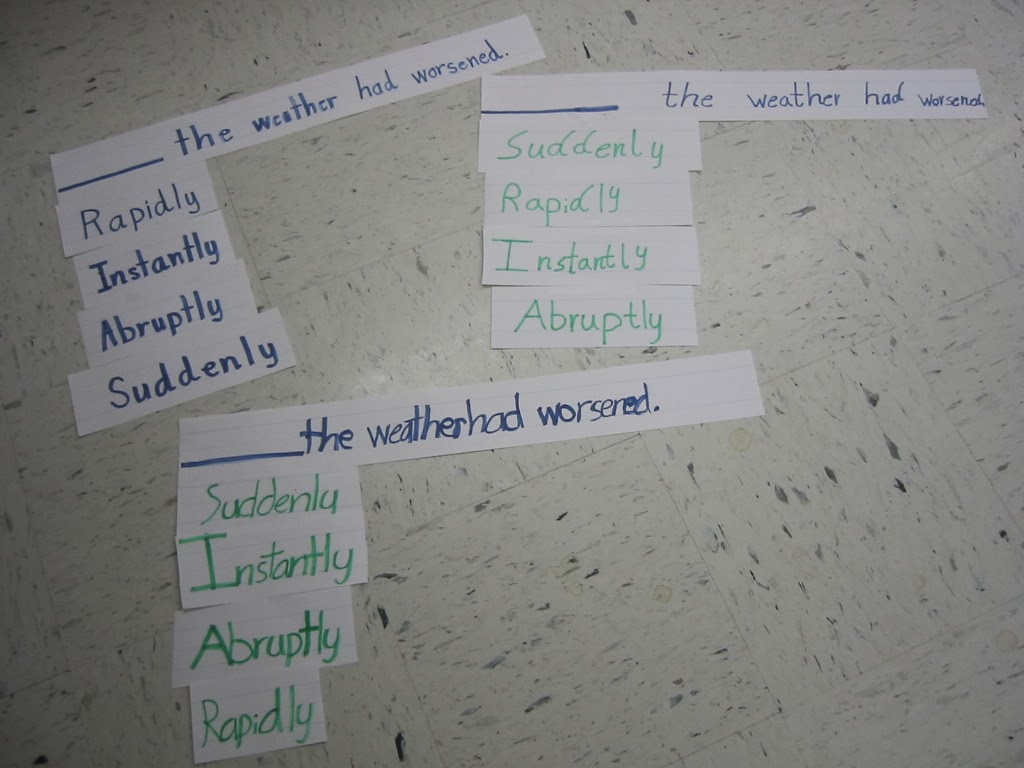 ______ the weather had worsened.
Rapidly
Instantly
Abruptly
Suddenly
______ the weather had worsened.
Suddenly
Rapidly
Instantly
Abruptly
______ the weather had worsened.
Suddenly
Instantly
Abruptly
Rapidly